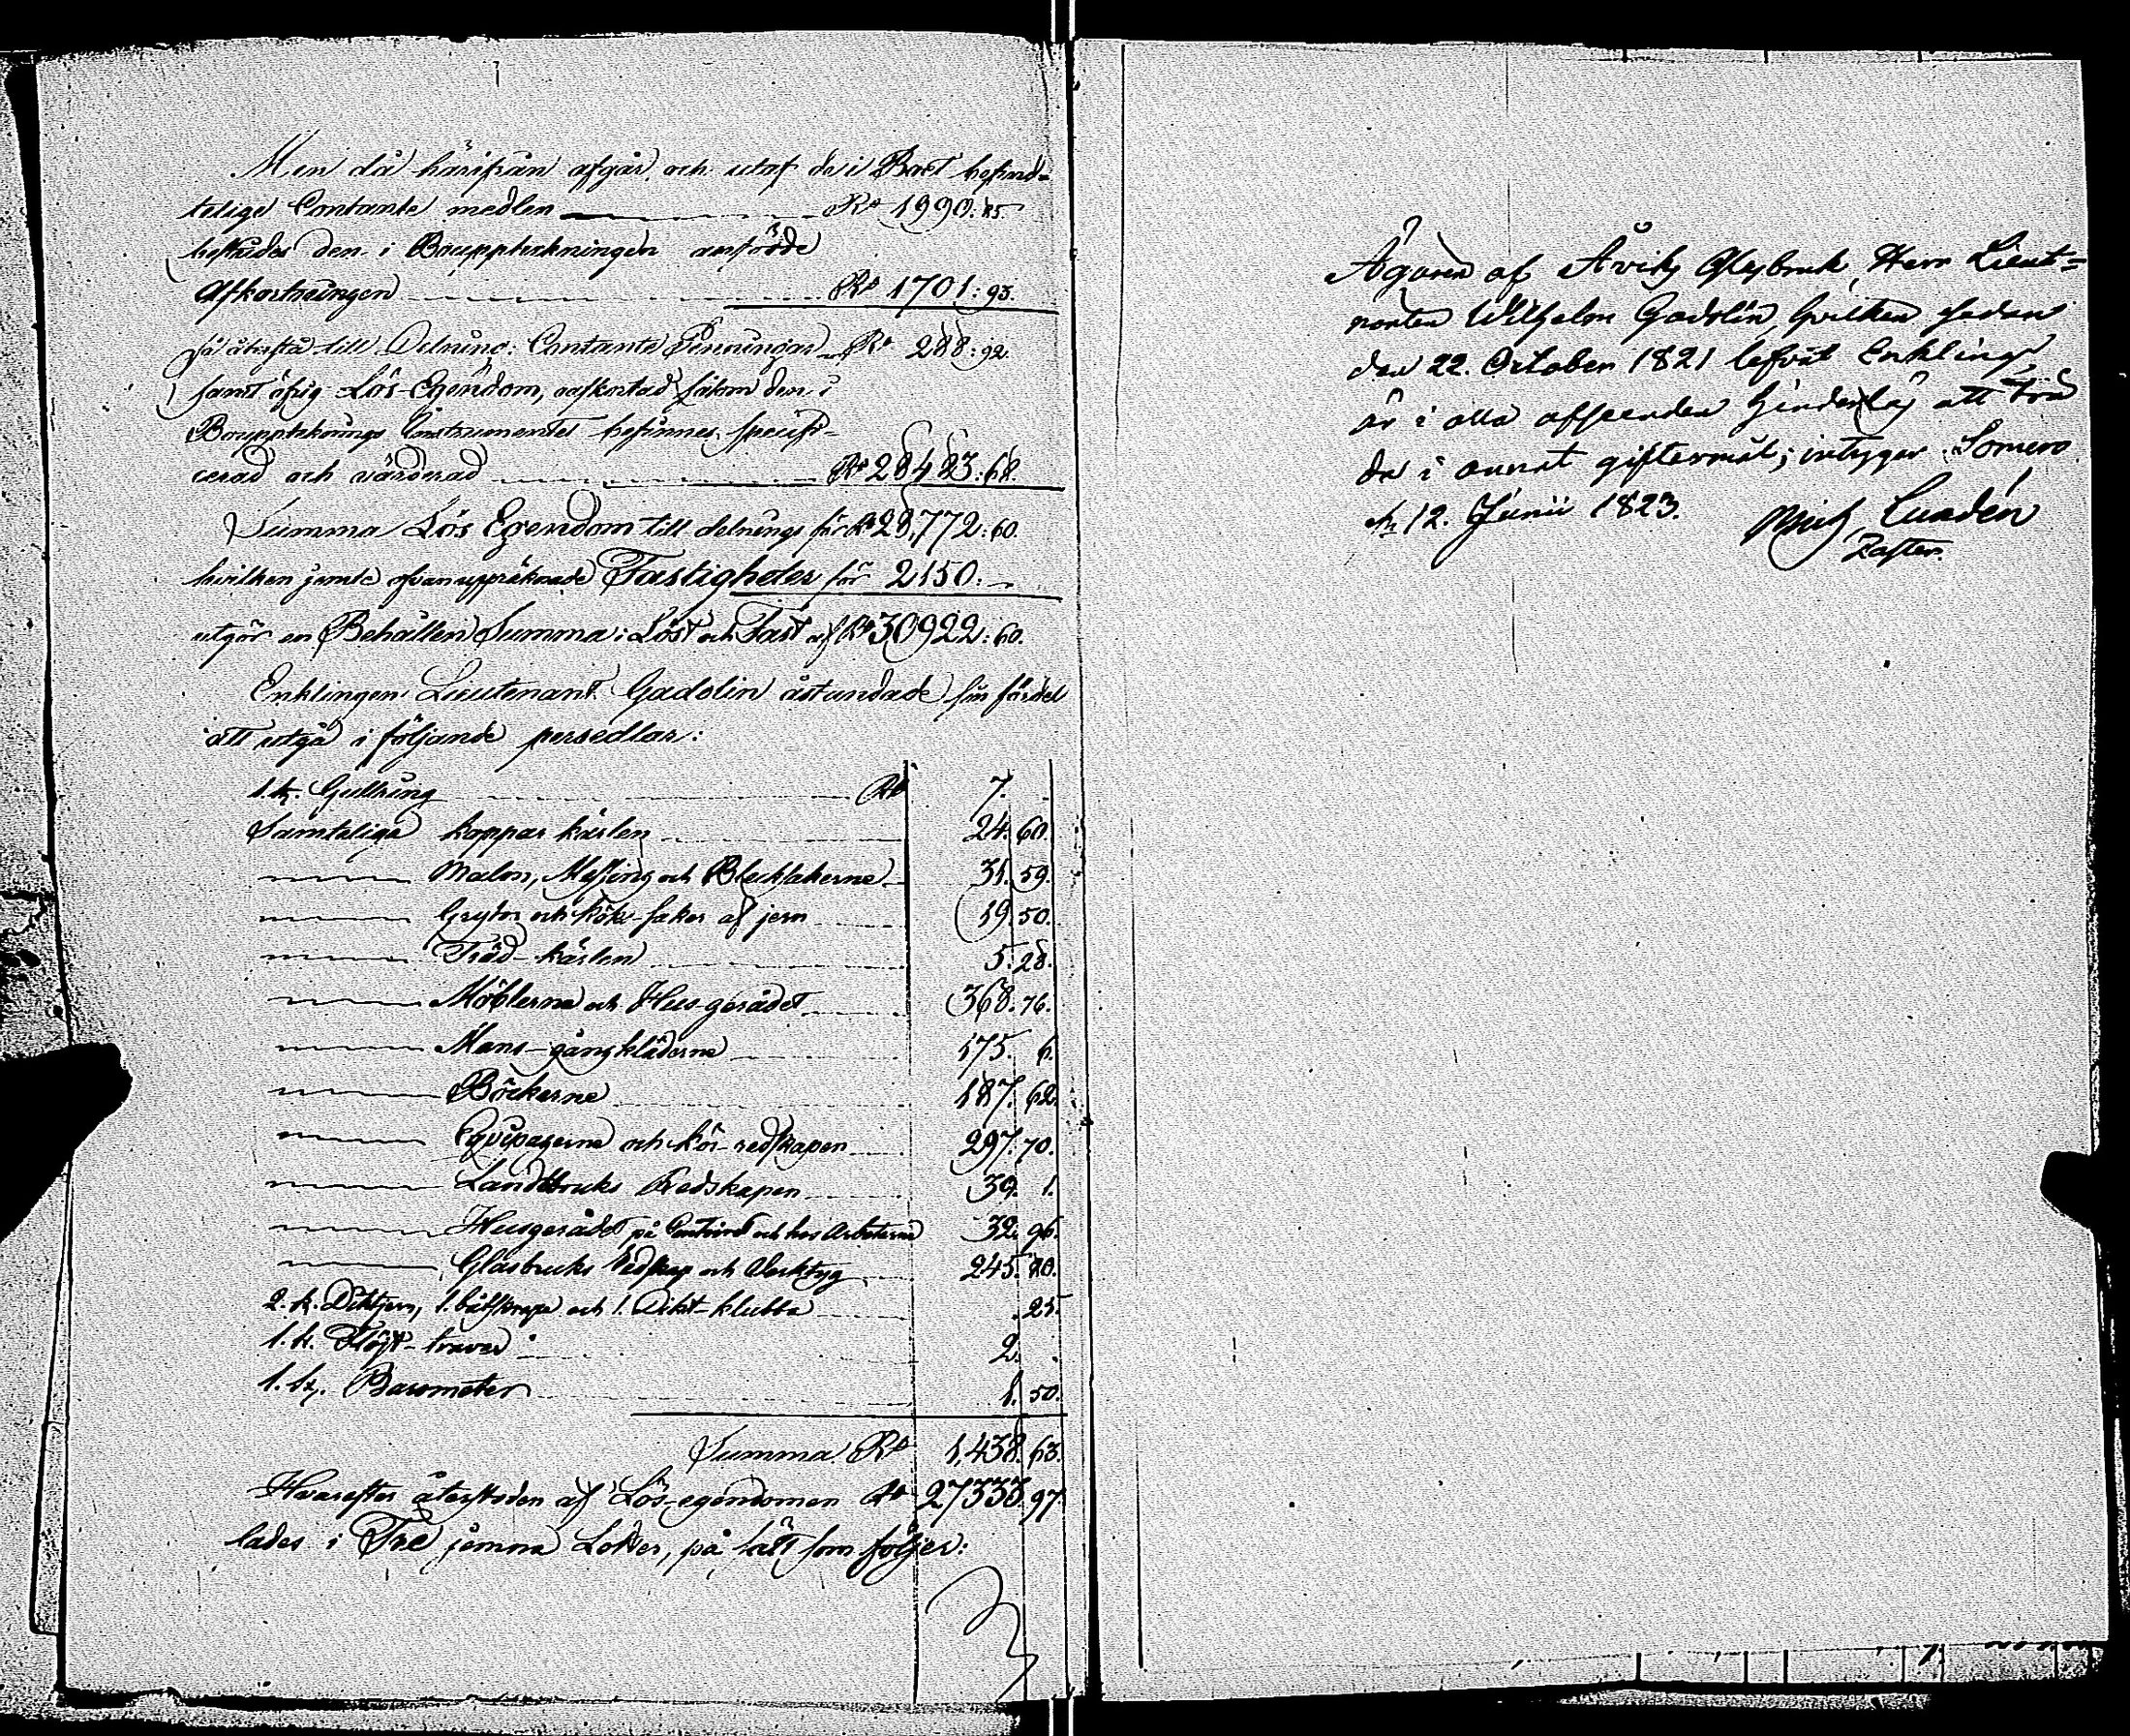 Men då härifrån afgår, och utaf de i Boet befind-
telige Contante medlen Ro 1990: 85.
bestrides den i Bouppteckningen anförde
Afkortningen Ro 1701: 93.
så återstå till Delning: Contante Penningar Ro 288: 92.
samt öfrig Lös-Egendom, oafkortad såsom den i
Bouppteknings Instrumentet befinnes specifi-
cerad och värderad Ro 28483: 68.
Summa Lös Egendom till delnings för Ro 28,772: 60.
hvilken jemte ofvanuppräknade Fastigheter för 2150: —
utgör en Behållen Summa i Löst och Fast af Ro 30922: 60.
Enklingen Lieutenant Gadolin åstundade sin fördel
att utgå i följande persedlar:
1. st. Gullring Ro 7.
Samtelige koppar kärlen 24. 60.
Malm, Messing och Blecksakerne 31. 59.
Grytor och Köks-saker af jern 19. 50.
Träd-kärlen 5. 28.
Möblerne och Hus-gerådet 368. 76.
Mans-gångkläderne 175. 6.
Böckerne 187. 62.
Equipagerne och Kör-redskapen 297. 70.
Landtbruks Redskapen 39. 1.
Husgerådet på Contoiret och hos Arbetarne 32. 96.
Glasbruks Redskap och Verktyg 245. 80.
2. st. Diktjern, 1. båtskrapa och 1. Dikt-klubba . 25.
1. st. Flöjt-traver 2. .
1. st. Barometer 1. 50.
Summa Ro 1,438. 63.
Hvarefter återstoden af Lös-egendomen Ro 27333. 97.
lades i Tre jemna Lotter, på sätt som följer:
Ägaren af Åviks Glasbruk, Herr Lieut-
nanten Wilhelm Gadolin, hvilken sedan
den 22. October 1821 lefvat Enkling,
är i alla afseenden hinderlös att trä
da i annat giftermål; intygar. Somero
den 12. Junii 1823. Mich. Lundén
Pastor.